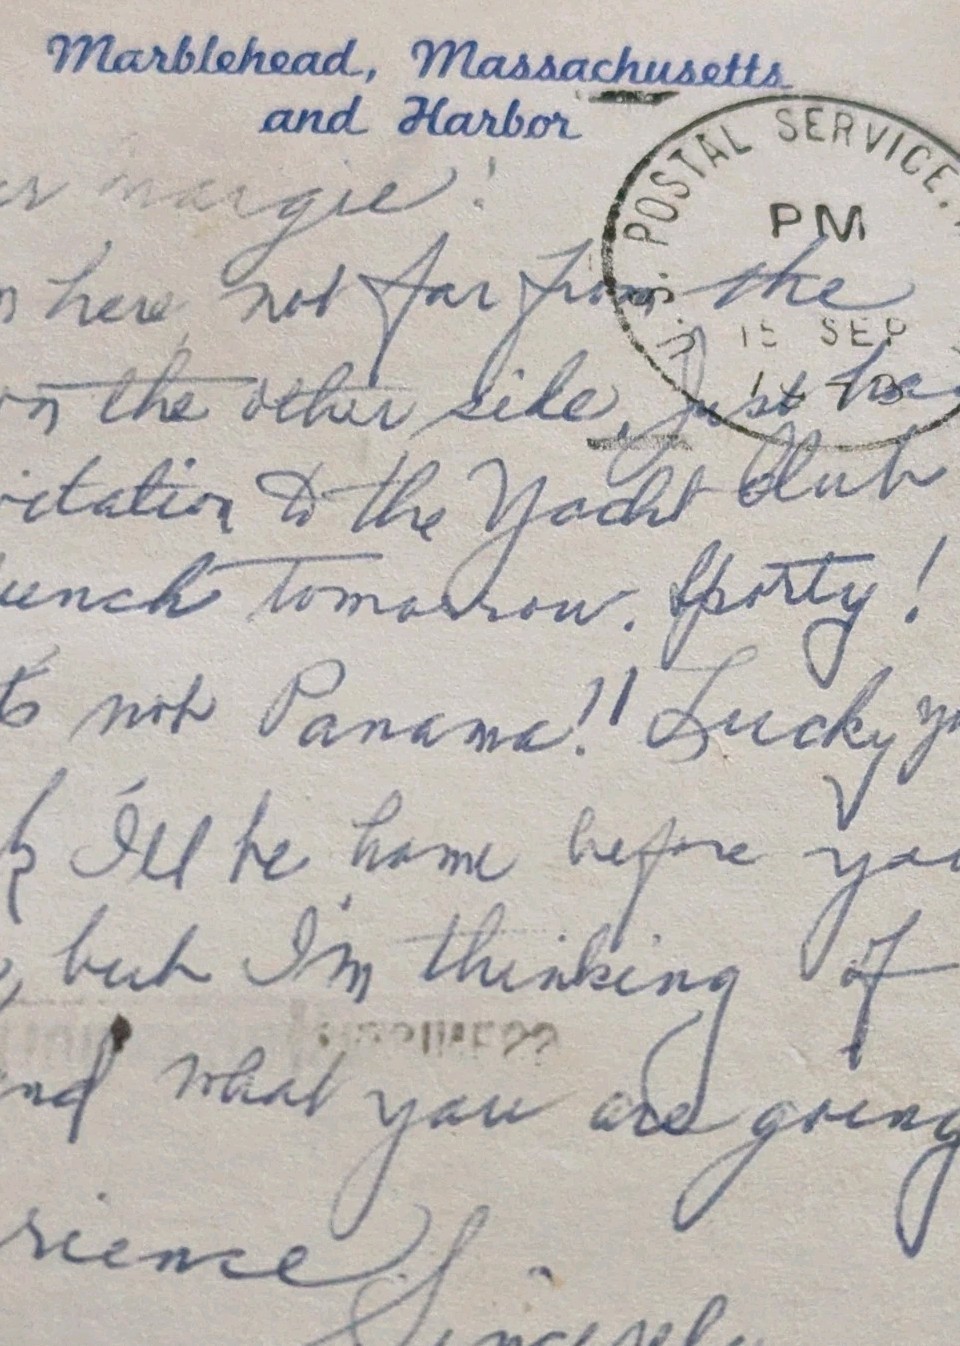 Marblehead, Massachusetts
and Harbor
U.S. POSTAL SERVICE.
PM
15 SEP
margie!
here not far from the
on the other side. Just ha
itation to the Yacht Club
unch tomorrow. Sporty!
not Panama!! Lucky yo
I'll be home before you
, but I'm thinking of
nd what you are going
rience
Sincerely